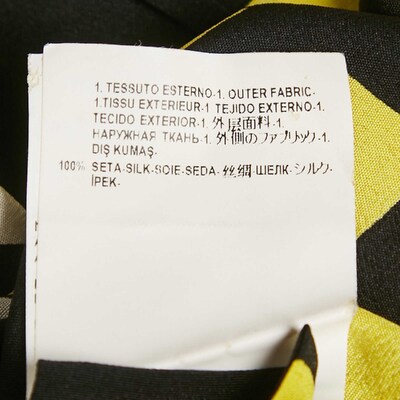 1. TESSUTO ESTERNO-1. OUTER FABRIC-
1.TISSU EXTERIEUR-1 TEJIDO EXTERNO-1.
TECIDO EXTERIOR-1. 外层面料-1.
НАРУЖНАЯ ТКАНЬ-1. 外側のファブリック-1.
DIŞ KUMAŞ-
100% SETA-SILK-SOIE-SEDA-丝绸-ШЕЛК-シルク-
İPEK-